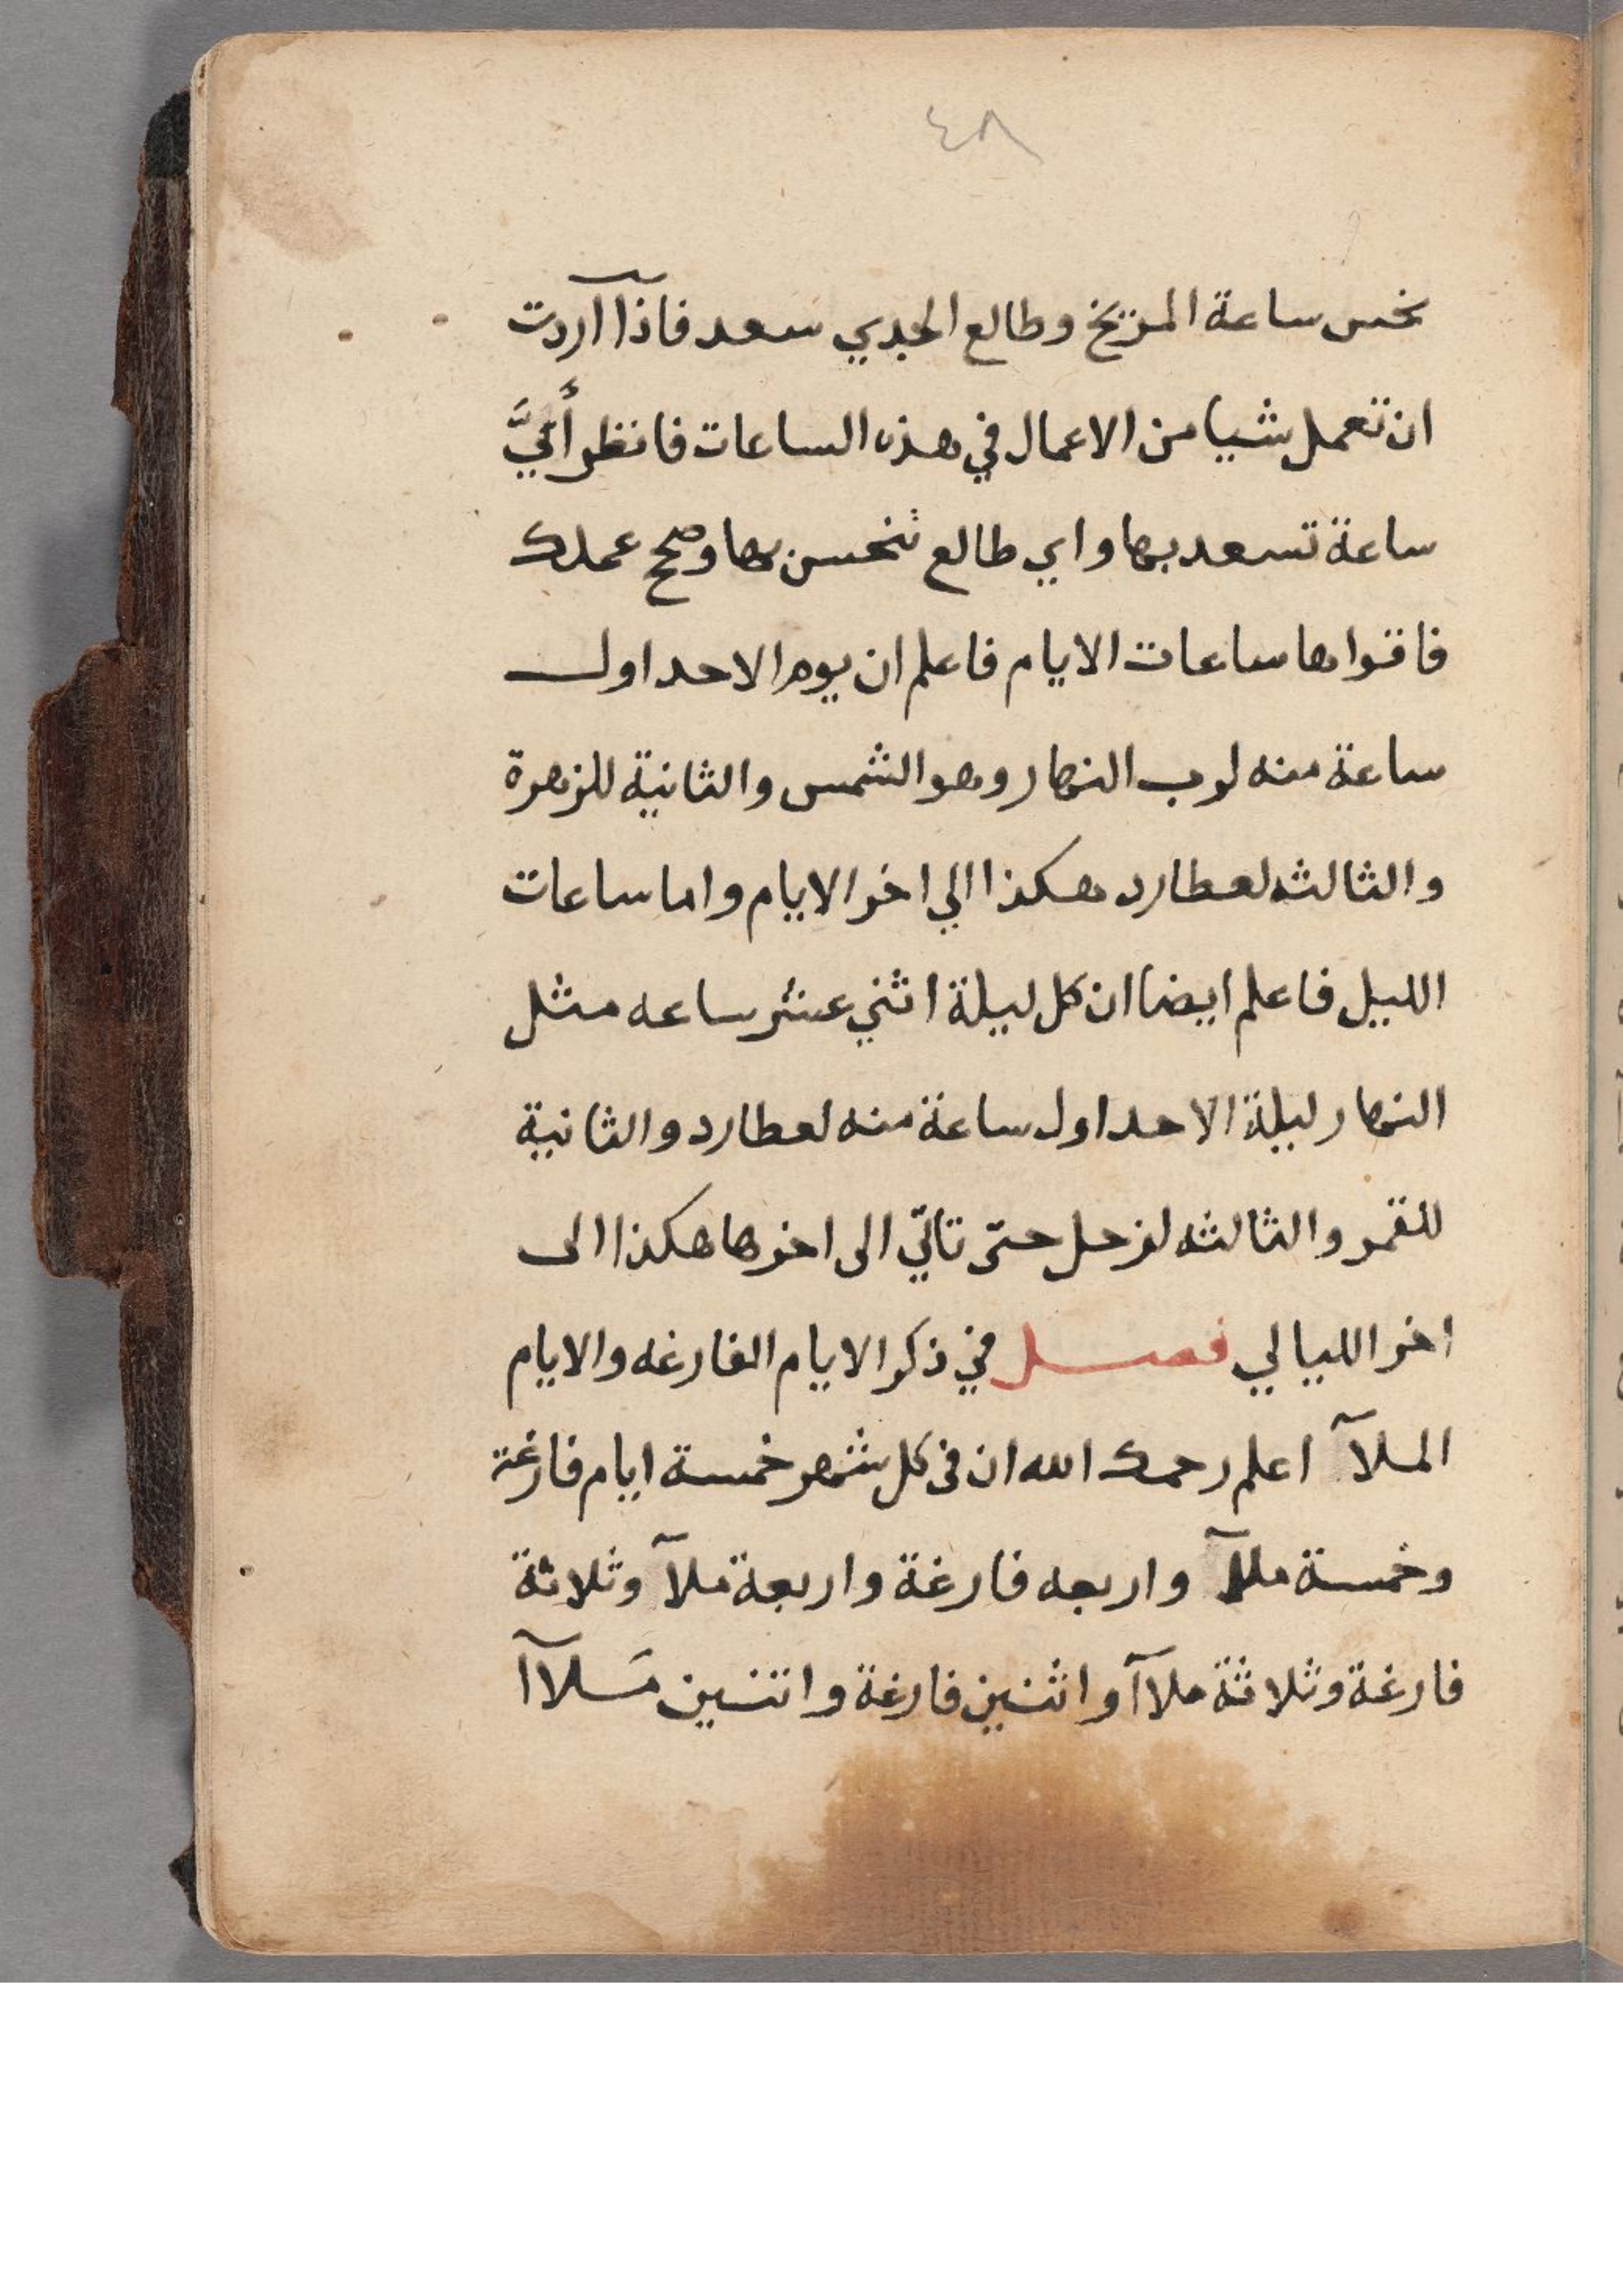 ٤٨
نحس ساعة المريخ وطالع الجدي سعد فاذآ آردت
ان تعمل شيا من الاعمال في هذه الساعات فانظر أيَّ
ساعة تسعد بها واي طالع تنحسن بها وصح عملك
ساعات الايام فاعلم ان يوم الاحد اول
ساعة منه لرب النهار وهو الشمس والثانية للزهرة
والثالثه لعطارد هكذا الي اخر الايام واما ساعات
الليل فاعلم ايضا ان كل ليلة اثني عشر ساعه مثل
النهار ليلة الاحد اول ساعة منه لعطارد والثانية
للقمر والثالثه لزحل حتى تاتي الى اخرها هكذا الى
اخر الليالي فصل في ذكر الايام الفارغه والايام
الملآ اعلم رحمك الله ان في كل شهر خمسة ايام فارغة
وخمسة ملآ واربعه فارغة واربعة ملآ وثلاثة
فارغة وثلاثة ملاآ واثنين فارغة واثنين مَلاآ